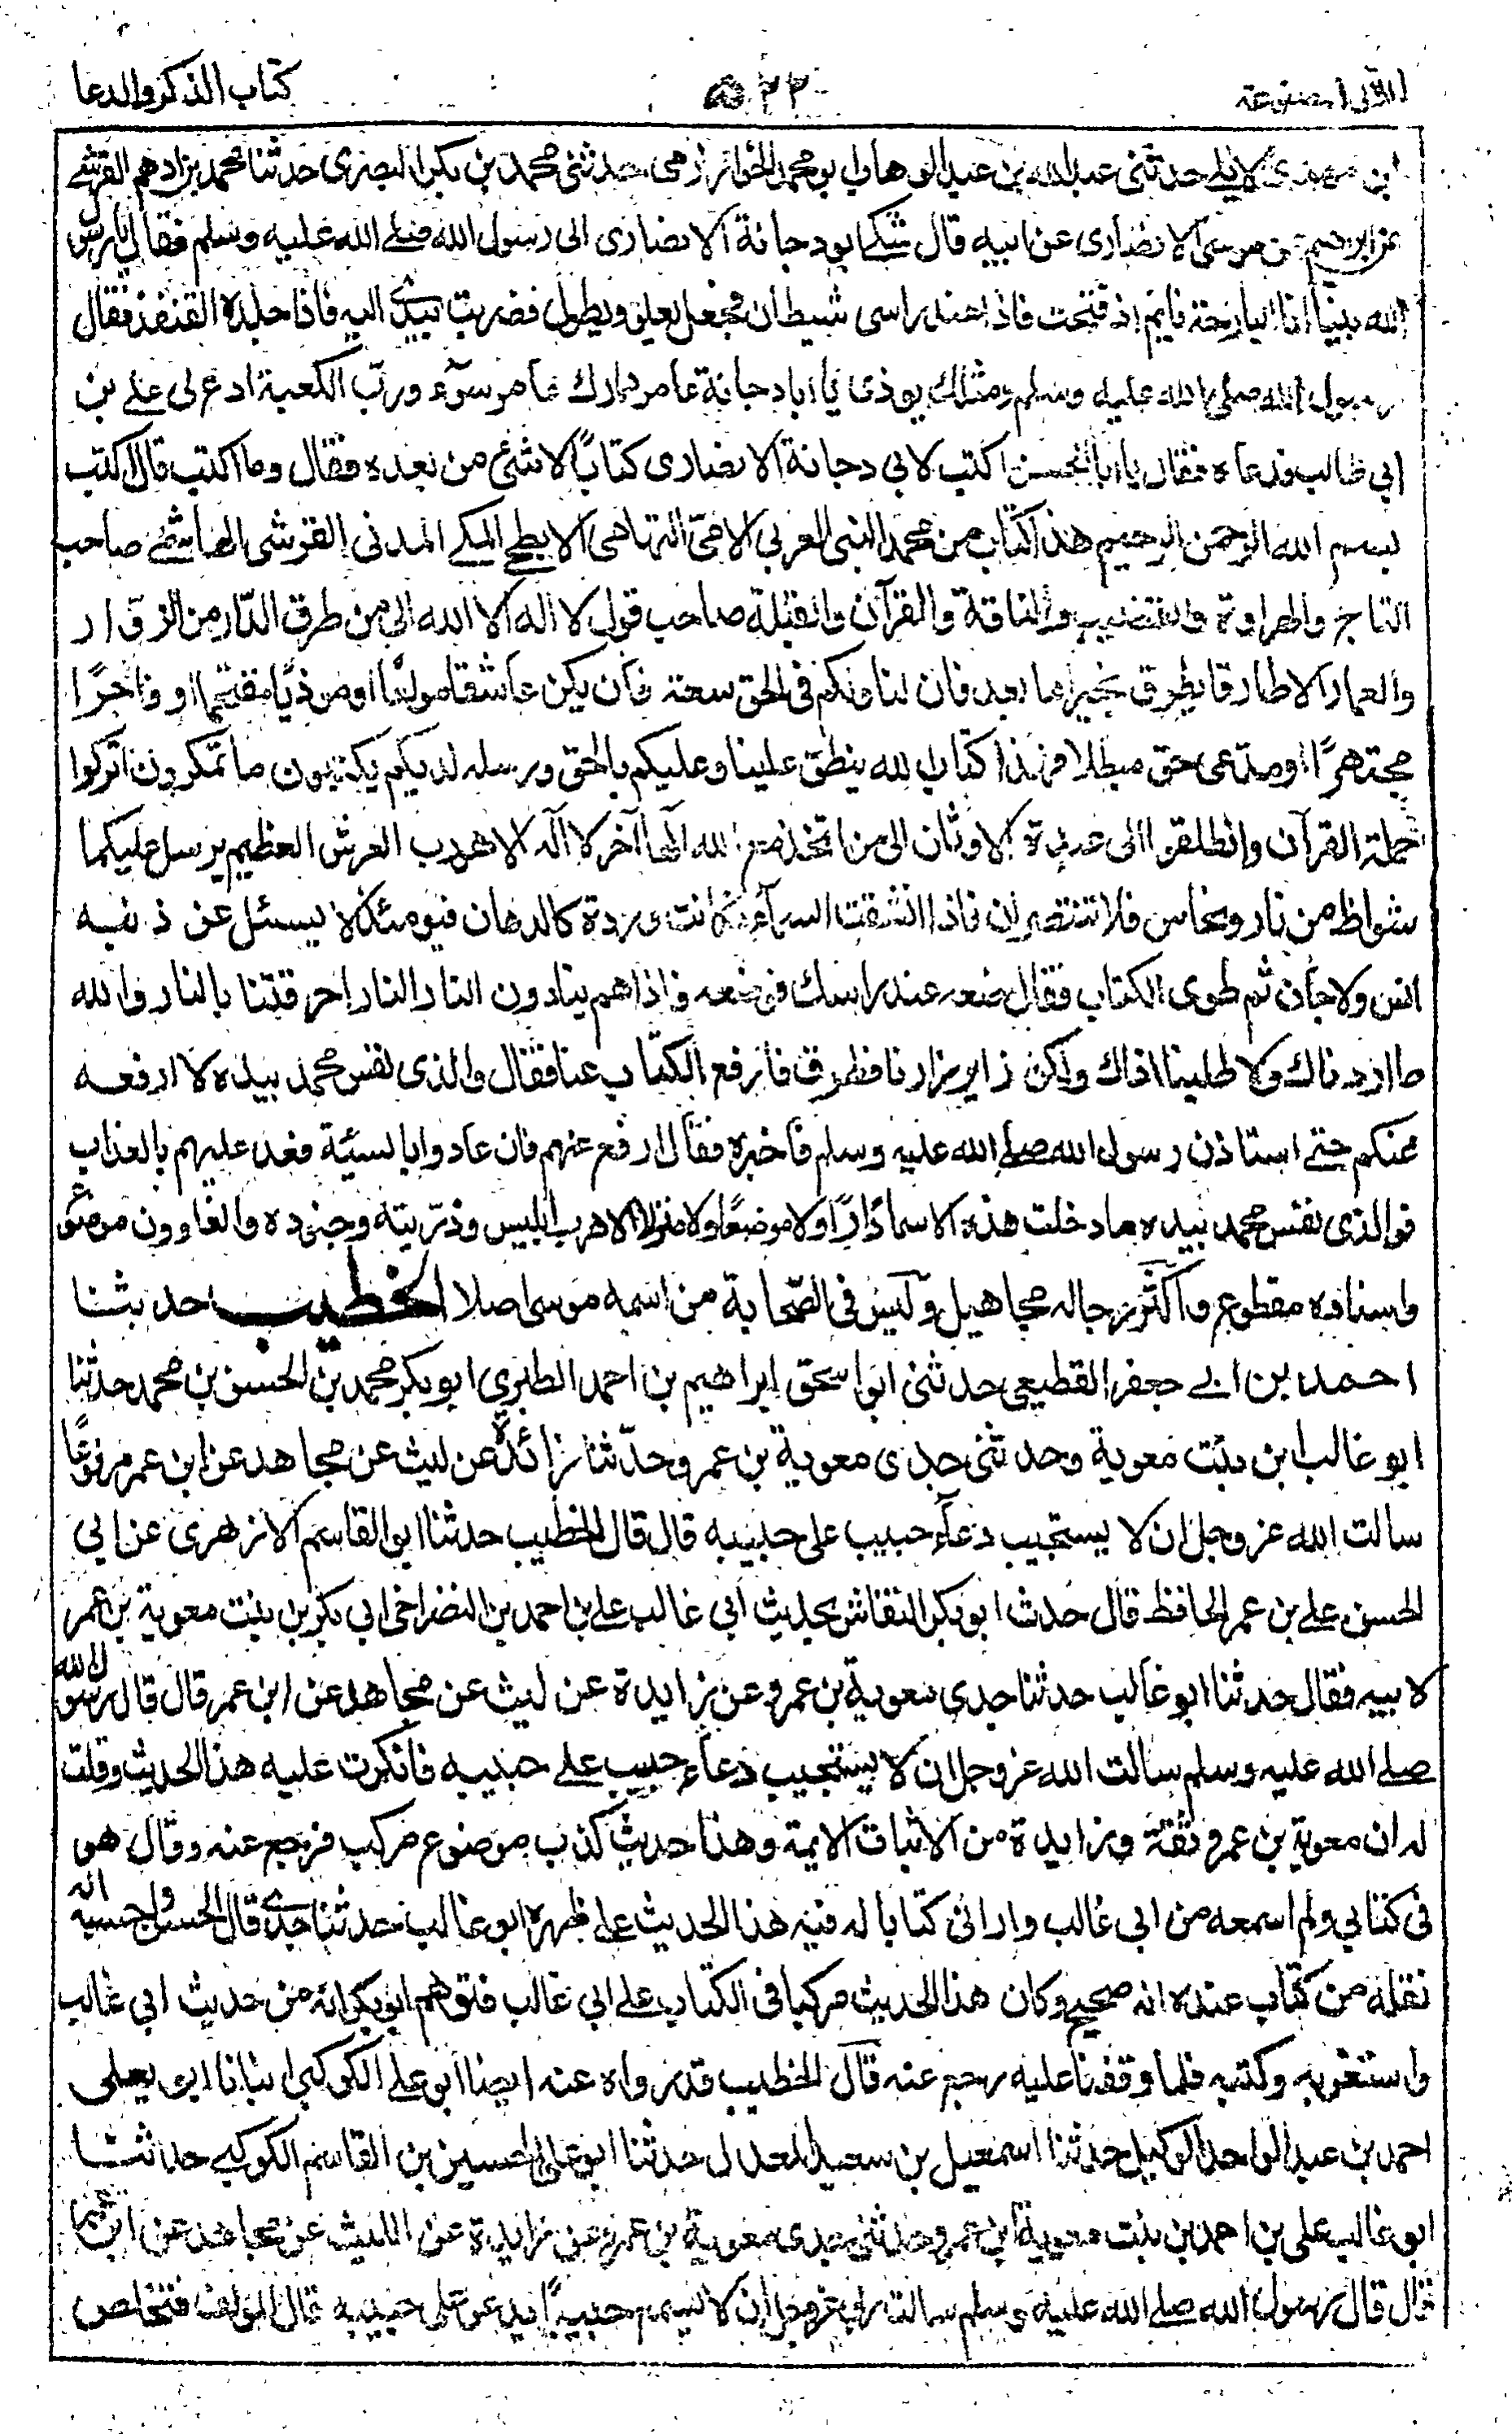 كتاب الذكر والدعا
٥٢٣
ابن مهدى الايلے حدثنى عبدالله بن عبد الوهاب ابو محمد الخوارزمى حدثنى محمد بن بكر البصرى حدثنا محمد بن ادهم القرشے
عن ابراهيم بن موسى الانصارى عن ابيه قال شكا ابو دجانة الانصارى الى رسول الله صلے الله عليه وسلم فقال يا رسول
الله بينا انا البارحة نايم اذ فتحت فاذا عند راسى شيطان فجعل يعلو ويطول فضربت بيدے اليه فاذا جلده القنفذ فقال
رسول الله صلى الله عليه وسلم ومثلك يوذى يا ابا دجانة عامر دارك عامر سوٓء ورب الكعبة ادع لى على بن
ابي طالب فدعاه فقال يا ابا الحسن اكتب لابي دجانة الانصارى كتابًا لا شئ من بعده فقال وما اكتب قال اكتب
بسم الله الرحمن الرحيم هذا كتاب من محمد النبى العربي الامىّ التهامى الابطحے المكے المدنى القرشى الهاشمے صاحب
التاج والهراوة والقضيب والناقة والقرآن والقبلة صاحب قول لا اله الا الله الى من طرق الدار من الزوّار
والعمار الا طارقا يطرق بخير اما بعد فان لنا ولكم فى الحق سعة فان يكن عاشقا مولعًا او موذيًا مقتحما او فاجرًا
مجتهرًا او مدعى حق مبطلا فهذا كتاب الله ينطق علينا وعليكم بالحق ورسله لديكم يكتبون ما تمكرون اتركوا
حملة القرآن وانطلقوا الى عبدة الاوثان الى من اتخذ مع الله الها آخر لا اله الا هو رب العرش العظيم يرسل عليكما
شواظ من نار ونحاس فلا تنتصران فاذا انشقت السمآء فكانت وردة كالدهان فيومئذ لا يسئل عن ذنبه
انس ولا جان ثم طوى الكتاب فقال ضعه عند راسك فوضعه فاذا هم ينادون النار النار احرقتنا بالنار والله
ما اردناك ولا طلبنا اذاك ولكن زاير زارنا فطرق فارفع الكتاب عنا فقال والذى نفس محمد بيده لا ارفعه
عنكم حتے استاذن رسول الله صلے الله عليه وسلم فاخبره فقال ارفع عنهم فان عادوا بالسيئة فعد عليهم بالعذاب
فوالذى نفس محمد بيده ما دخلت هذه الاسمآء دارًا ولا موضعًا ولا منزلا الا هرب ابليس وذريته وجنوده والغاوون موضوع
واسناده مقطوع واكثر رجاله مجاهيل وليس فى الصّحابة من اسمه موسى اصلا الخطيب حدثنا
احمد بن ابے جعفر القطيعى حدثنى ابو اسحق ابراهيم بن احمد الطبري ابو بكر محمد بن الحسن بن محمد حدثنا
ابو غالب ابن بنت معوية وحدثنى جدى معوية بن عمرو حدّثنا زائدة عن ليث عن مجاهد عن ابن عمر مرفوعًا
سالت الله عز وجل ان لا يستجيب دعآء حبيب على حبيبه قال قال الخطيب حدثنا ابو القاسم الازهرى عن ابي
الحسن علے بن عمر الحافظ قال حدث ابو بكر النقاش بحديث ابي غالب علے بن احمد بن النضر اخى ابي بكر بن بنت معوية بن عمر
لابيه فقال حدثنا ابو غالب حدثنا جدى معوية بن عمرو عن زايدة عن ليث عن مجاهد عن ابن عمر قال قال رسول الله
صلے الله عليه وسلم سالت الله عز وجل ان لا يستجيب دعآء حبيب علے حبيبه فانكرت عليه هذا الحديث وقلت
له ان معوية بن عمرو ثقة وزايدة من الاثبات الايمة وهذا حديث كذب موضوع مركب فرجع عنه وقال هو
فى كتابي ولم اسمعه من ابي غالب وارانى كتابا له فيه هذا الحديث علے ظهره ابو غالب حدثنا جدے قال الحسن واحسبه انه
نقله من كتاب عنده انه صحيح وكان هذا الحديث مركبا فى الكتاب علے ابي غالب فتوهم ابو بكر انه من حديث ابي غالب
واستغربه وكتبه فلما وقفنا عليه رجع عنه قال الخطيب قد رواه عنه ايضا ابو علے الكوكبي انبانا ابو يعلى
احمد بن عبد الواحد الوكيل حدثنا اسمعيل بن سعيد المعدل حدثنا ابو على الحسين بن القاسم الكوكبے حدثنا
ابو غالب على بن احمد بن بنت معوية ابن عمرو حدثنى جدى معوية بن عمرو عن زايدة عن الليث عن مجاهد عن ابن عمر
قال قال رسول الله صلے الله عليه وسلم سالت ربي عز وجل ان لا يسمع حبيبًا يدعو على حبيبه قال المولف فتخلص